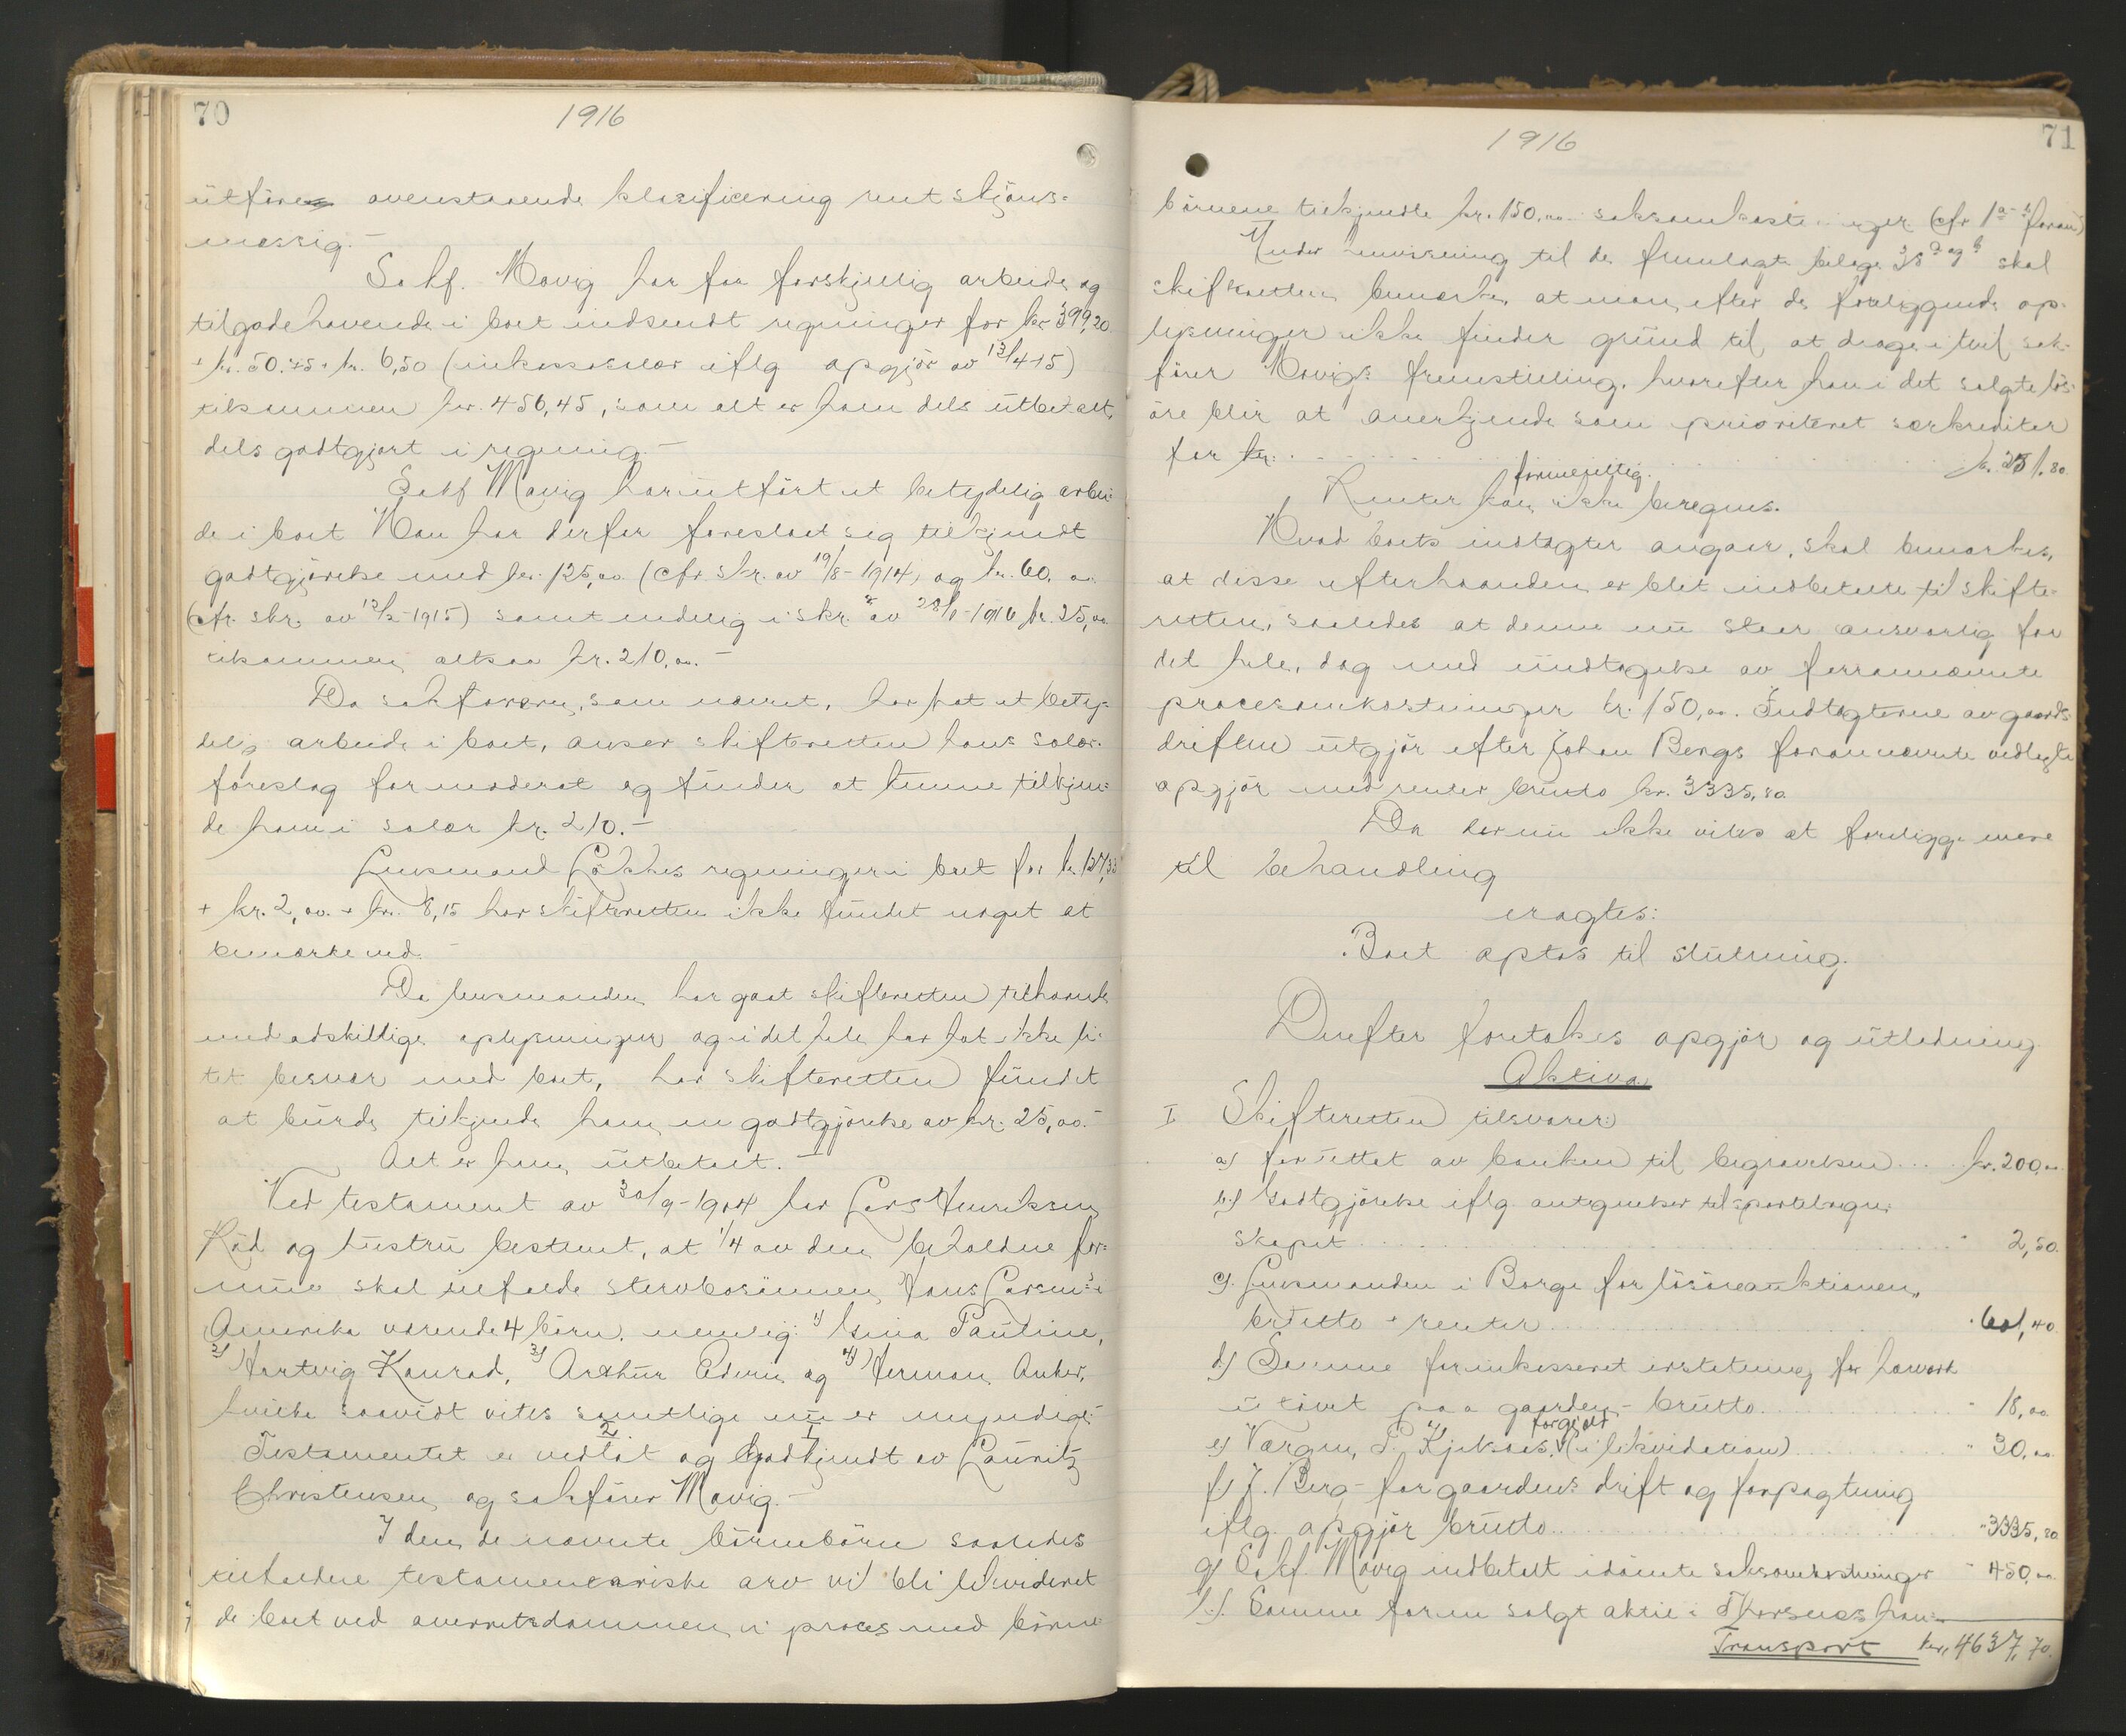 70
1916
utføres ovenstaaende klasificering rent skjøns-
mæssig.-
Sakf. Movig har for forskjellig arbeide og
tilgodehavende i boet indsendt regninger for kr 399,20
+ kr. 50.75 + kr. 6,50 (inkassosalær iflg opgjør av 13/4-15)
tilsammen kr. 456,45, som alt er ham dels utbetalt,
dels godtgjort i regning.-
Sakf Movig har utført et betydelig arbei-
de i boet Han har derfor foreslaat sig tilkjendt
godtgjørelse med kr. 125,00 (cfr skr. av 19/8-1914, og kr. 60,00
(cfr. skr. av 12/2-1915) samt endelig i skr. av 28/1-1916 kr. 25,00
tilsammen altsaa kr. 210,00.-
Da sakføreren, som nævnt, har hat et bety-
delig arbeide i boet, anser skifteretten hans salær-
forslag for moderat og finder at kunne tilkjen-
de ham i salær kr. 210.-
Lensmand Løkkes regninger i boet for kr.
+ kr. 2,00 + kr. 8,15 har skifteretten ikke fundet noget at
bemærke ved.-
Da lensmanden har gaat skifteretten tilhaande
med adskillige oplysninger og i det hele har hat ikke li-
tet besvær med boet, har skifteretten fundet
at burde tilkjende ham en godtgjørelse av kr. 25,00.-
Alt er ham utbetalt.-
Ved testament av 30/9-1904 har Lars Henriksen
Rød og hustru bestemt, at 1/4 av den beholdne for-
mue skal tilfalde stervbosønnen Hans Larsens i
Amerika værende 4 børn, nemlig: 1) Gina Pauline,
2) Hartvig Konrad, 3) Arthur Edvin og 4) Herman Anker,
hvilke saavidt vites samtlige nu er umyndige.-
Testamentet er vedtat og godkjendt av Lauritz
Christensen og sakfører Movig.-
I den de nævnte børnebørn saaledes
tilfaldne testamentariske arv vil bli likvideret
de boet ved overretsdommen i proces med børne
71
1916
børnene tilkjendte kr. 150,00 saksomkostninger (cfr 1 foran)
Under henvisning til de fremlagte bilage 38 a og b skal
skifteretten bemerke, at man efter de foreliggende op-
lysninger ikke finder grund til at drage i tvil sak-
fører Movigs fremstilling, hvorefter han i det solgte løs-
øre blir at anerkjende som prioriteret særkreditor
for kr. . . . kr. 251.80
formentlig
Renter kan ikke beregnes.
Hvad boets indtægter angaar, skal bemerkes,
at disse efterhaanden er blet indbetalte til skifte-
retten, saaledes at denne nu staar ansvarlig for
det hele, dog med undtagelse av forannævnte
procesomkostninger kr. 150,00. Indtægterne av gaards
driften utgjør efter Johan Bergs forannævnte vedlagte
opgjør med renter brutto kr. 3335,80
Da der nu ikke vites at foreligge mere
til behandling
eragtes:
Boet optas til slutning.
Derefter foretokes opgjør og utledning
Aktiva
I Skifteretten tilsvarer:
a) for uttat av banken til begravelsen . . . kr. 200,00
b) Godtgjørelse iflg. antegnelser til sportelregn-
skapet . . . " 2,50
c) Lensmanden i Borge for løsøreauktionen,
brutto + renter . . . " 601,40
d) Samme for inkasseret erstatning for
paa gaarden - brutto . . . " 18,00
forgjæld
e) Værgen, P. (i likvidation) . . . " 30,00
f) J. Berg - for gaardens drift og forpagtning
iflg. opgjør brutto . . . " 3335,80
g) Sakf. Movig indbetalt idømte saksomkostninger " 450,00
h) Samme for en solgt aktie i
Transport kr. 4637,70